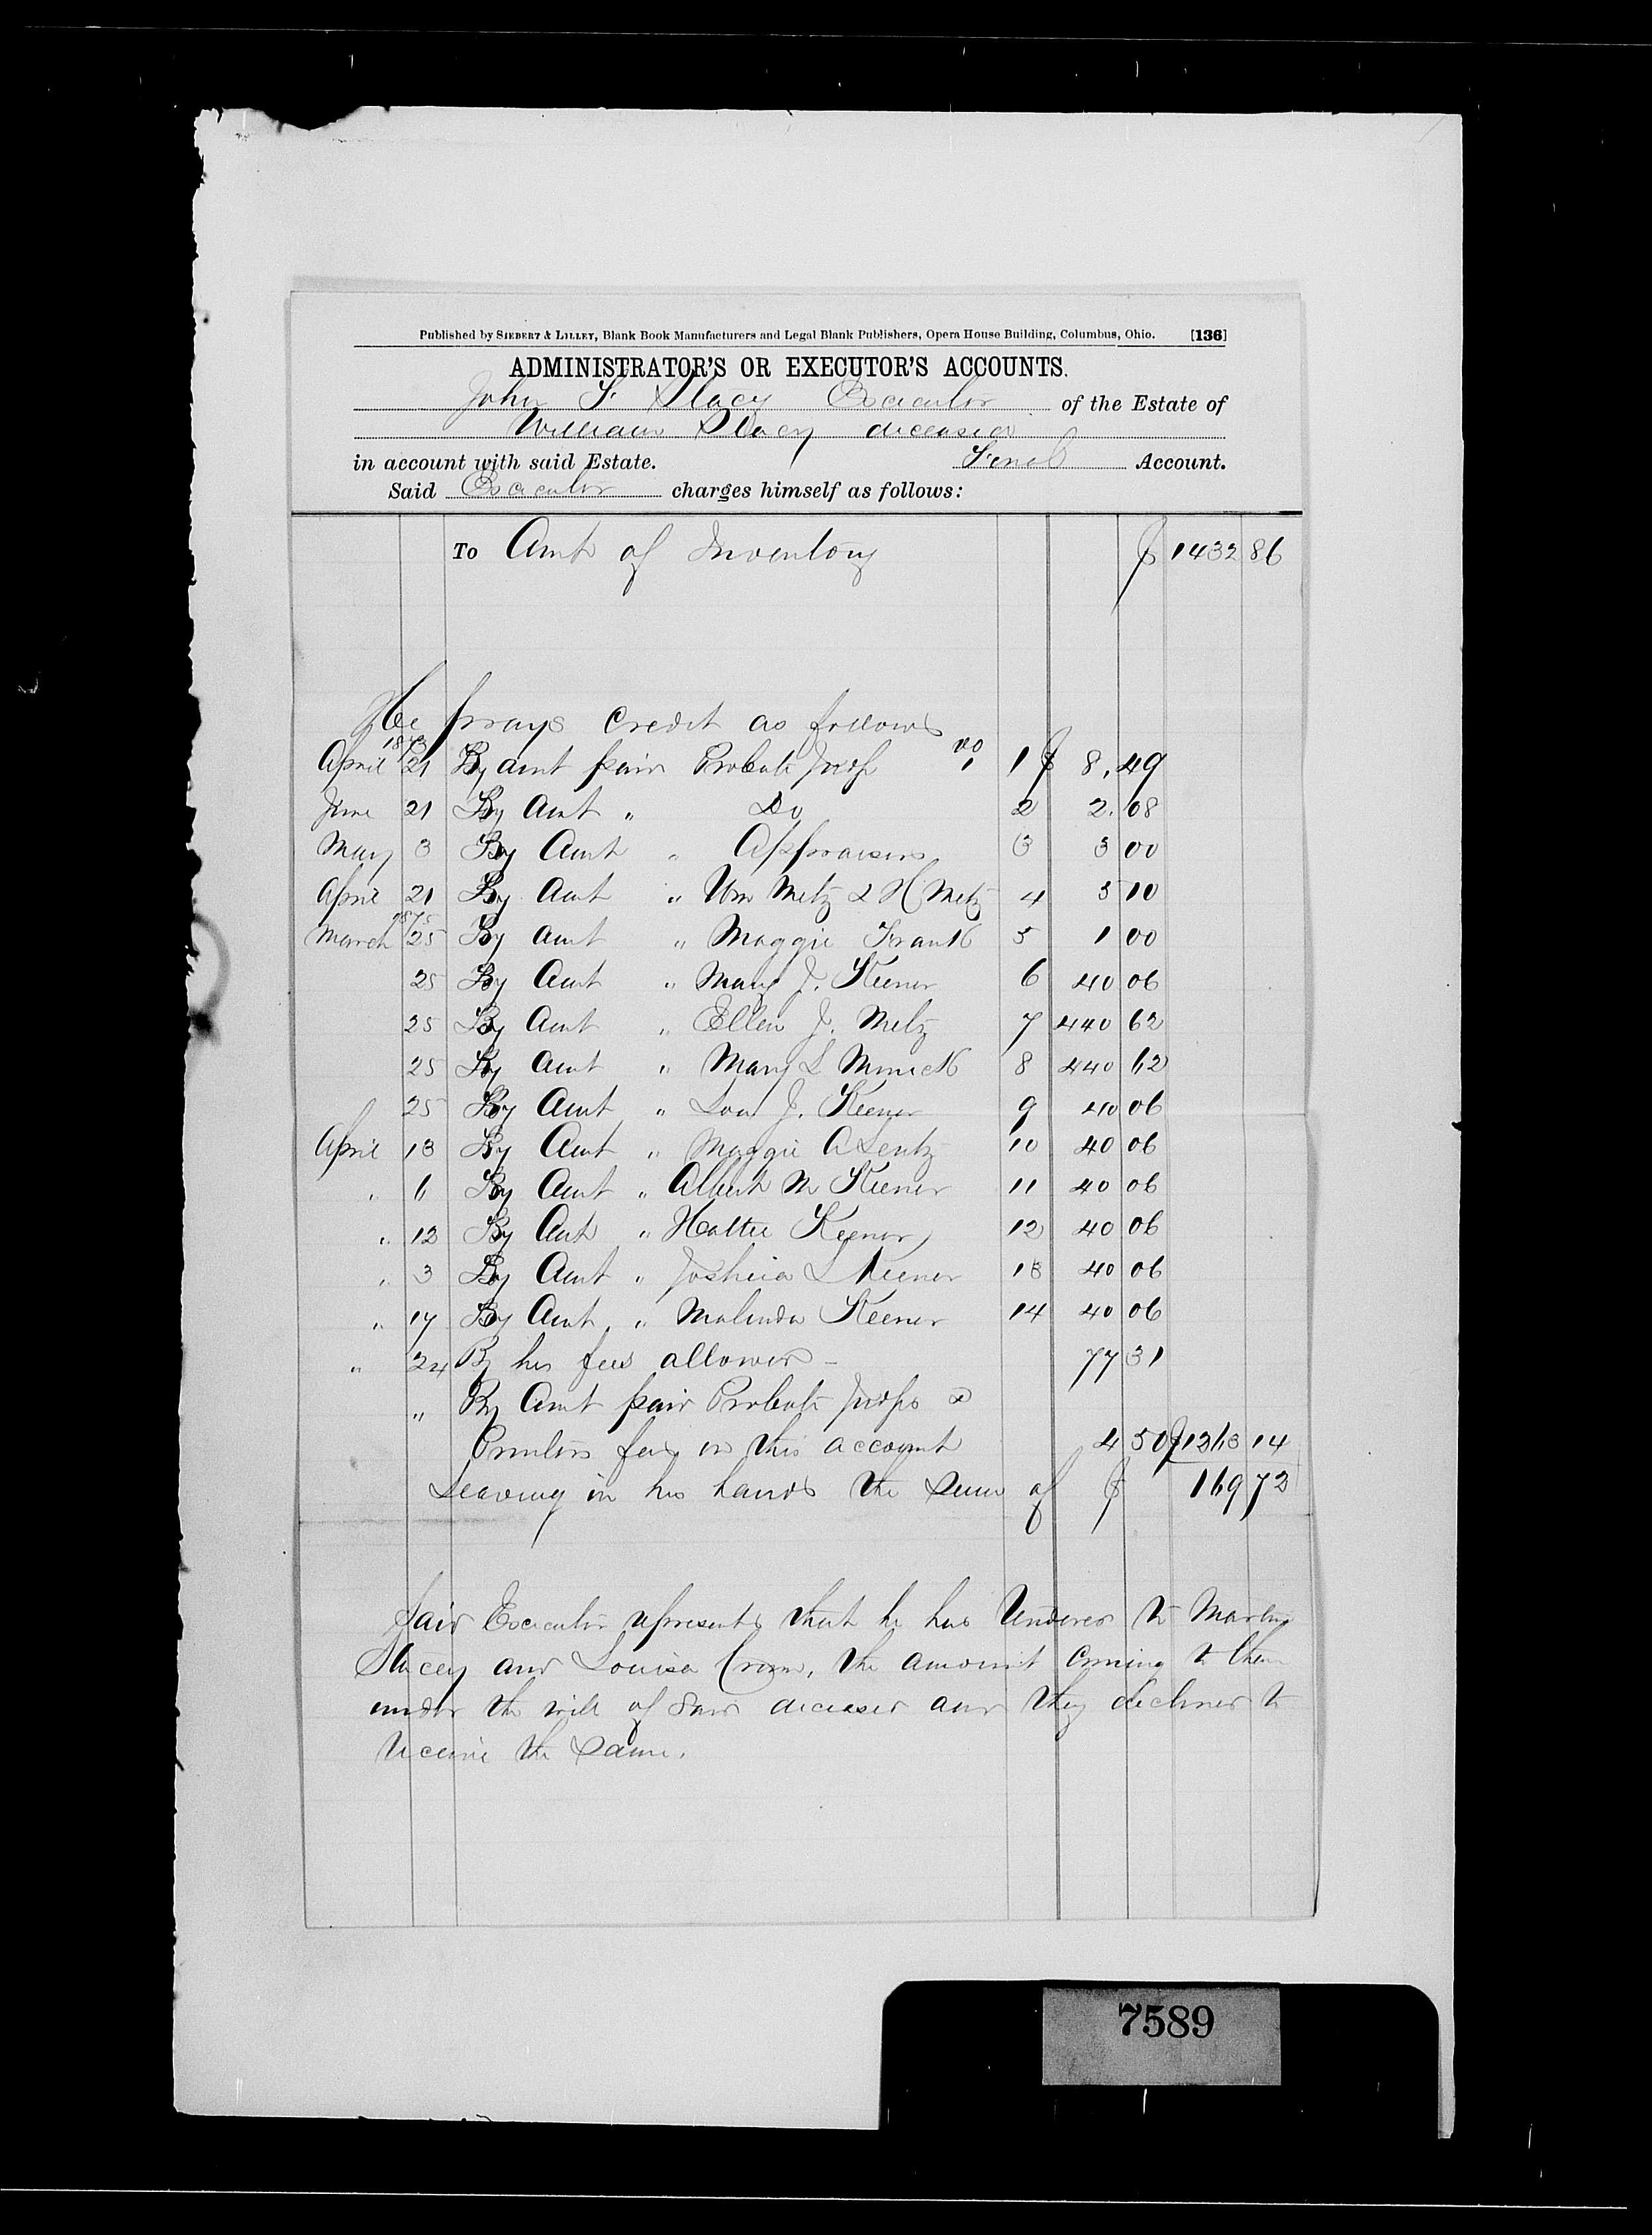 Published by SIEBERT & LILLEY, Blank Book Manufacturers and Legal Blank Publishers, Opera House Building, Columbus, Ohio. [136]
ADMINISTRATOR'S OR EXECUTOR'S ACCOUNTS.
John F. Stacy Executor of the Estate of
William Stacy deceased
in account with said Estate. Final Account.
Said Executor charges himself as follows:
To Amt of Inventory $ 1432 86
He prays Credit as follows
1873
April 21 By amt paid Probate Judge No 1 $ 8.49
June 21 By Amt " Do 2 2.08
May 3 By Amt " Appraisers 3 3 00
April 21 By Amt " Wm Metz & H Metz 4 5 10
1875
March 25 By Amt " Maggie Frank 5 1 00
25 By Amt " Mary J. Keener 6 40 06
25 By Amt " Ellen J. Metz 7 440 62
25 By Amt " Mary L Minick 8 440 62
25 By Amt " Lou J. Keener 9 40 06
April 13 By Amt " Maggie A Lentz 10 40 06
" 6 By Amt " Albert M Keener 11 40 06
" 12 By Amt " Hattie Keener 12 40 06
" 3 By Amt " Joshua L Keener 13 40 06
" 17 By Amt " Malinda Keener 14 40 06
" 24 By his fees allowed - 77 31
" By Amt paid Probate Judge &
Printers fees on this account 4 50 $1263 14
Leaving in his hands the sum of $ 169 72
Said Executor represents that he has tendered to
Stacey and Louisa the amount coming to them
under the will of said deceased and they declined to
receive the same.
7589